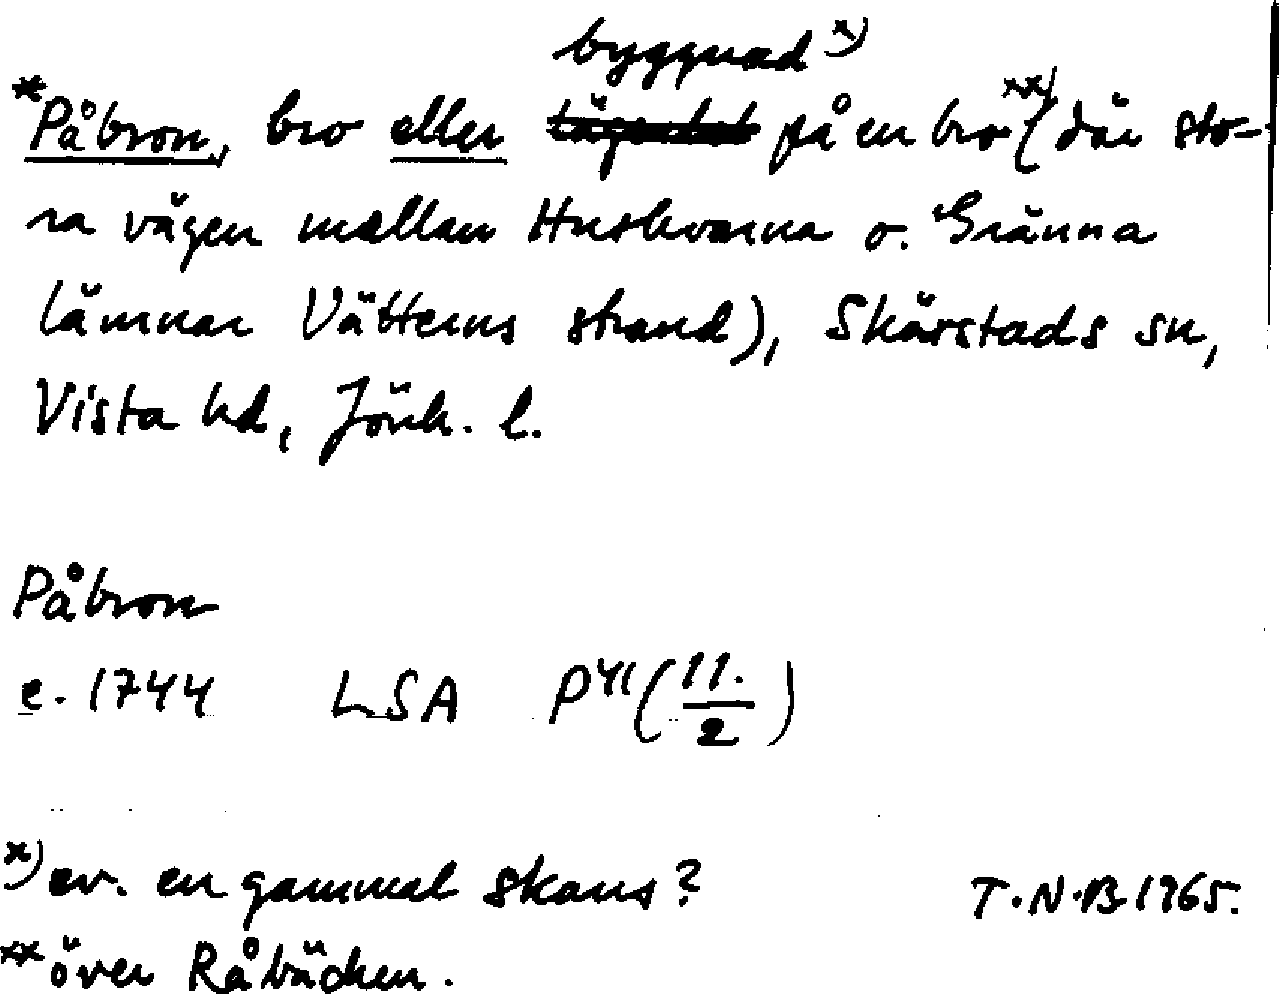 byggnad x)
*Påbron, bro eller på en bro xx) (där sto-
ra vägen mellan Huskvarna o. Gränna
lämnar Vätterns strand), Skärstads sn,
Vista hd, Jönk. l.
Påbron
c. 1744 LSA P 41 (11./2)
x) ev. en gammal skans?
T.N.B 1965.
xx över Råbäcken.